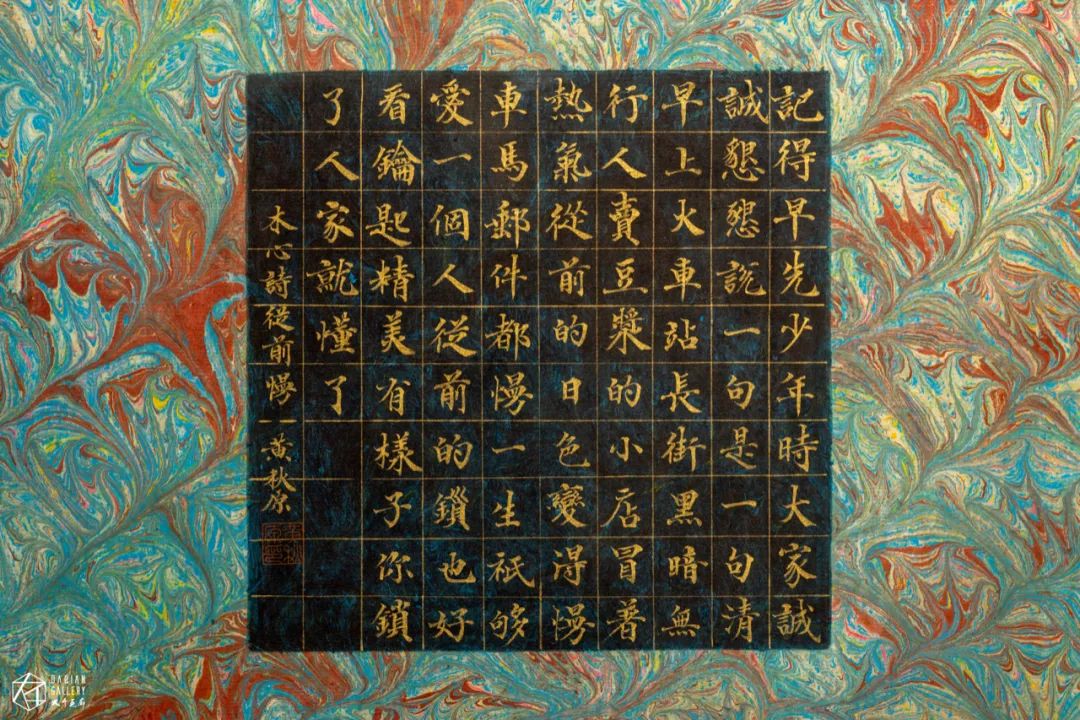 記得早先少年時大家誠
誠懇懇説一句是一句清
早上火車站長街黑暗無
行人賣豆漿的小店冒著
熱氣從前的日色變得慢
車馬郵件都慢一生祇够
愛一個人從前的鎖也好
看鑰匙精美有樣子你鎖
了人家就懂了
木心詩從前慢 黄秋原
DABIAN
GALLERY